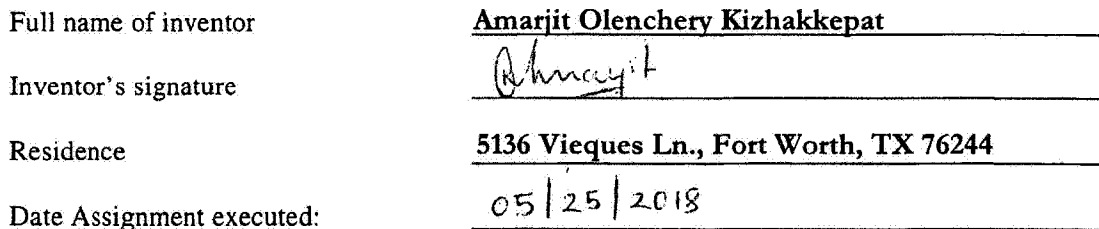 Full name of inventor Amarjit Olenchery Kizhakkepat
Inventor's signature Amarjit
Residence 5136 Vieques Ln., Fort Worth, TX 76244
Date Assignment executed: 05/25/2018